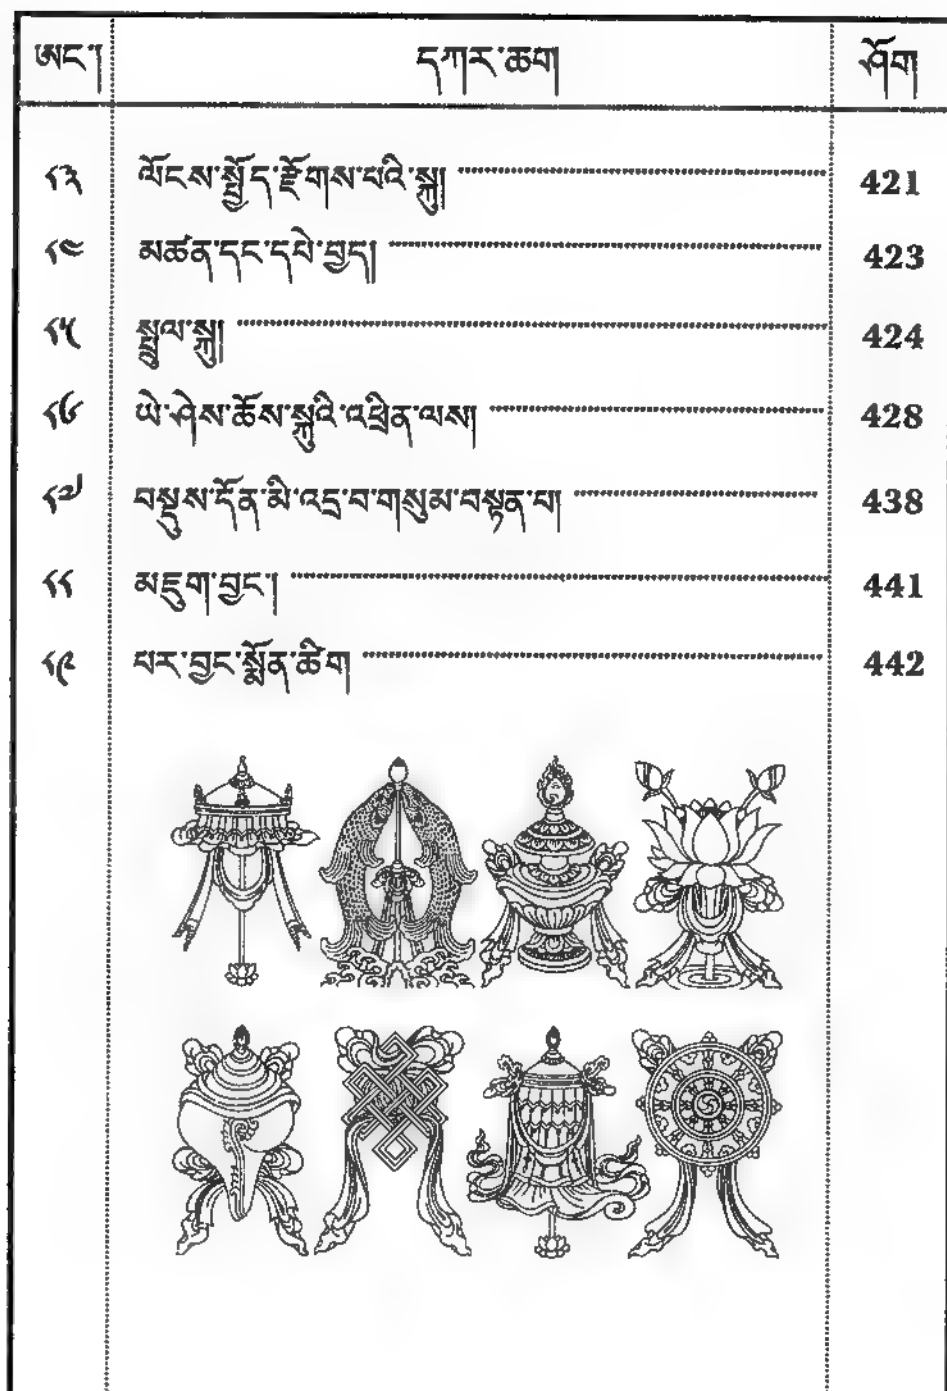 ཨང་། དཀར་ཆག ཤོག
༨༣ ལོངས་སྤྱོད་རྫོགས་པའི་སྐུ། 421
༨༤ མཚན་དང་དཔེ་བྱད། 423
༨༥ སྤྲུལ་སྐུ། 424
༨༦ ཡེ་ཤེས་ཆོས་སྐུའི་འཕྲིན་ལས། 428
༨༧ བསྡུས་དོན་མི་འདྲ་བ་གསུམ་བསྟན་པ། 438
༨༨ མཇུག་བྱང་། 441
༨༩ པར་བྱང་སྨོན་ཚིག 442